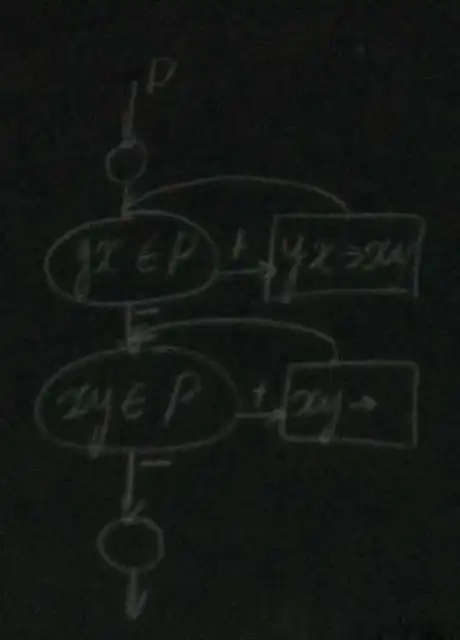 P
yx ∈ P + yx → xy
−
xy ∈ P + xy →
−